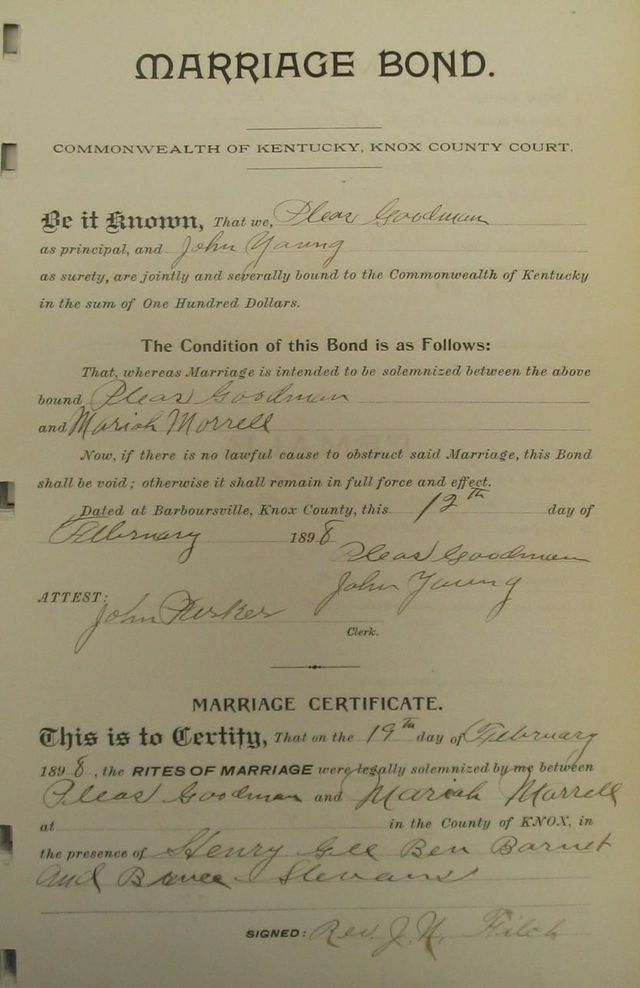 MARRIAGE BOND.
COMMONWEALTH OF KENTUCKY, KNOX COUNTY COURT.
Be it Known, That we, Pleas Goodman
as principal, and John Young
as surety, are jointly and severally bound to the Commonwealth of Kentucky
in the sum of One Hundred Dollars.
The Condition of this Bond is as Follows:
That, whereas Marriage is intended to be solemnized between the above
bound Pleas Goodman
and Mariah Morrell
Now, if there is no lawful cause to obstruct said Marriage, this Bond
shall be void; otherwise it shall remain in full force and effect.
Dated at Barboursville, Knox County, this 12th day of
February 1898
Pleas Goodman
John Young
ATTEST:
John
Clerk.
MARRIAGE CERTIFICATE.
This is to Certify, That on the 19th day of February
1898, the RITES OF MARRIAGE were legally solemnized by me between
Pleas Goodman and Mariah Morrell
at in the County of KNOX, in
the presence of Henry Gee Ben Barnet
and Stevans
SIGNED: Rev. J. H.